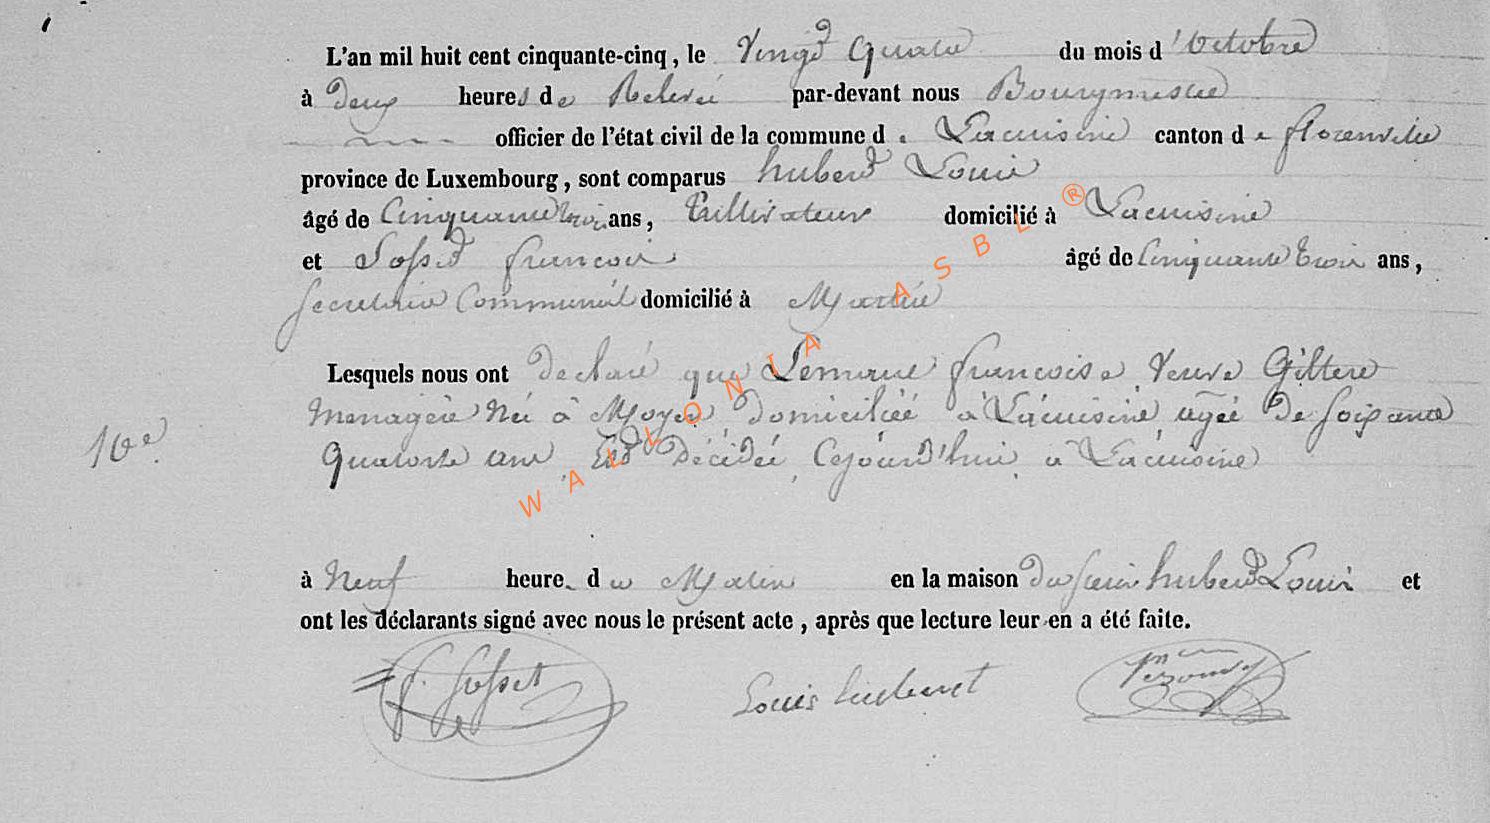 L'an mil huit cent cinquante-cinq, le Vingt Quatre du mois d'Octobre
à Deux heures de Relevé par-devant nous Bourgmestre
officier de l'état civil de la commune de Lacuisine canton de florenville
province de Luxembourg, sont comparus hubert Louis
âgé de Cinquante trois ans, Cultivateur domicilié à Lacuisine
et Gosset francois âgé de Cinquante trois ans,
secretaire Communal domicilié à Martué
Lesquels nous ont Declaré que francoise Veuve
Menagère Née à Moyen Domiciliée à Lacuisine agée De soixante
16e
Quatorze ans Est Décédée Cejourd'hui à Lacuisine
à Neuf heure du Matin en la maison Du hubert Louis et
ont les déclarants signé avec nous le présent acte, après que lecture leur en a été faite.
f. Gosset Louis hubert
WALLONIA ASBL ®